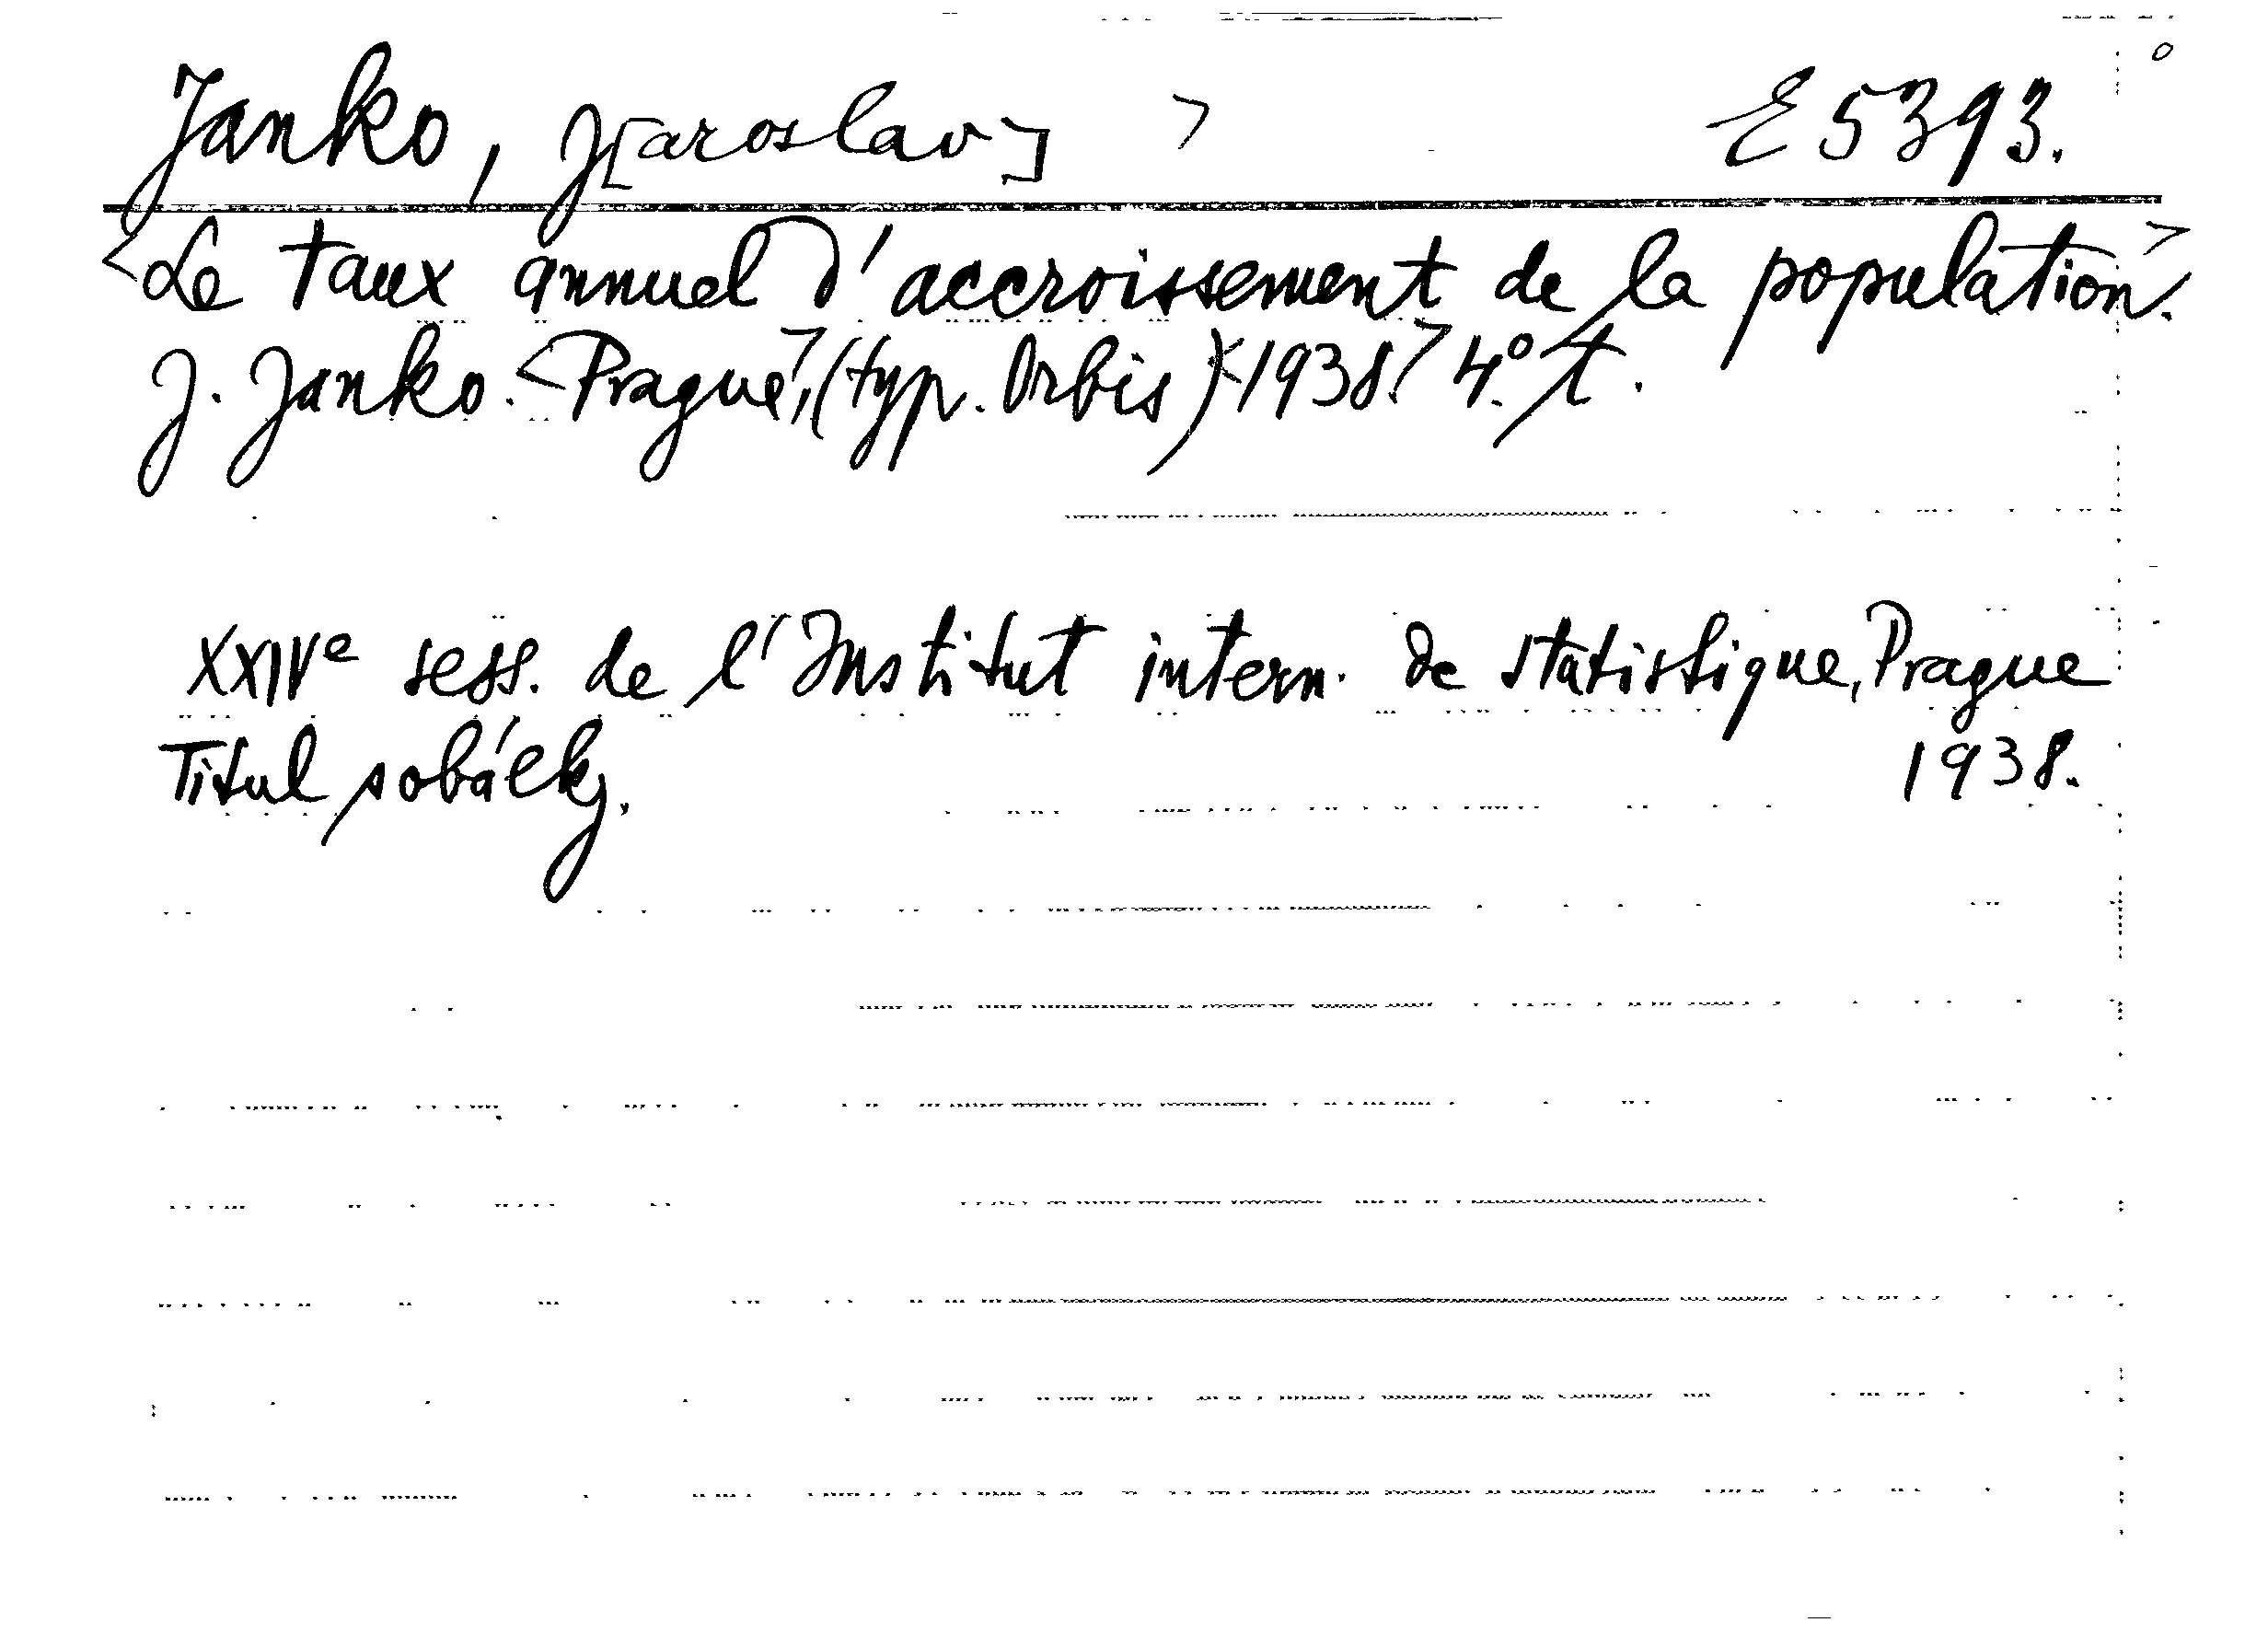 Janko, J[aroslav] > E 5393.
<Le taux annuel d'accroissement de la population.>
J. Janko. <Prague>, (typ. Orbis) <1938.> 4.° t.
XXIVe sess. de l'Institut intern. de statistique, Prague
Titul s obálky. 1938.